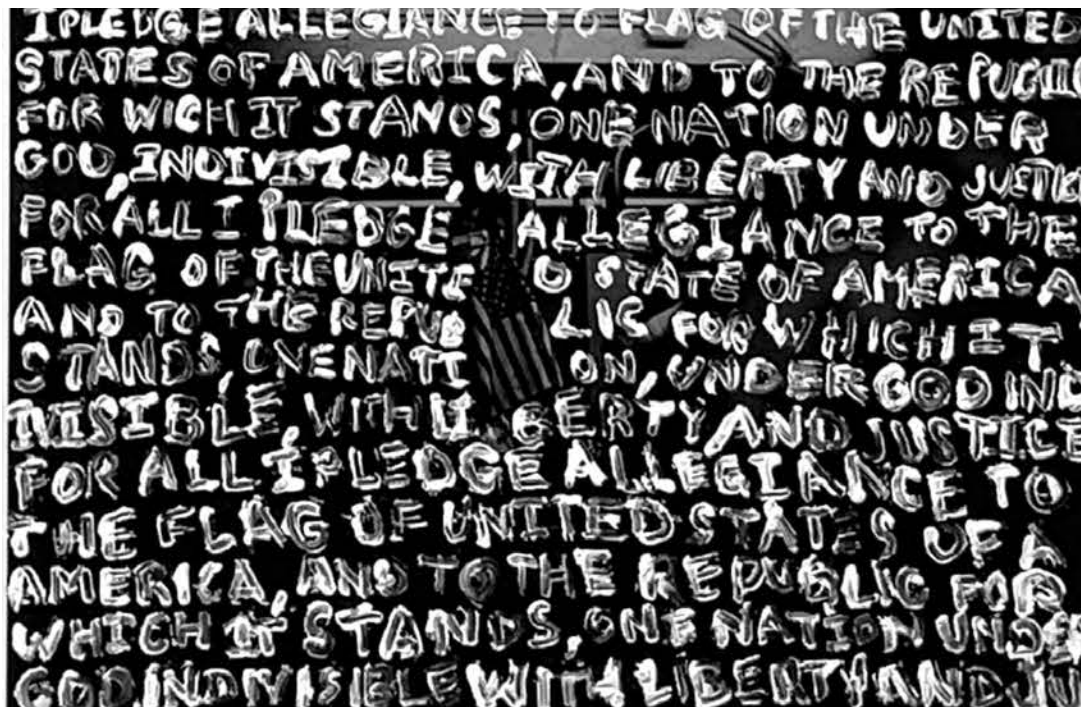 I PLEDGE ALLEGIANCE TO FLAG OF THE UNITED
STATES OF AMERICA, AND TO THE REPUGLIC
FOR WICH IT STANDS, ONE NATION UNDER
GOD, INDIVISIBLE, WITH LIBERTY AND JUSTIC
FOR ALL I PLEDGE ALLEGIANCE TO THE
FLAG OF THE UNITE D STATE OF AMERICA
AND TO THE REPUB LIC FOR WHICH IT
STANDS, ONE NATI ON, UNDER GOD IND
IVISIBLE, WITH LI BERTY AND JUSTICE
FOR ALL. I PLEDGE ALLEGIANCE TO
THE FLAG OF UNITED STATES OF A
AMERICA, AND TO THE REPUBLIC FOR
WHICH IT STANDS, ONE NATION UNDE
GOD, INDIVISIBLE WITH LIBERTY AND JU